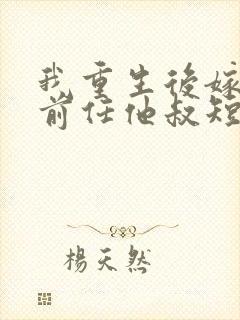 我重生後嫁
前任他叔短
楊天然